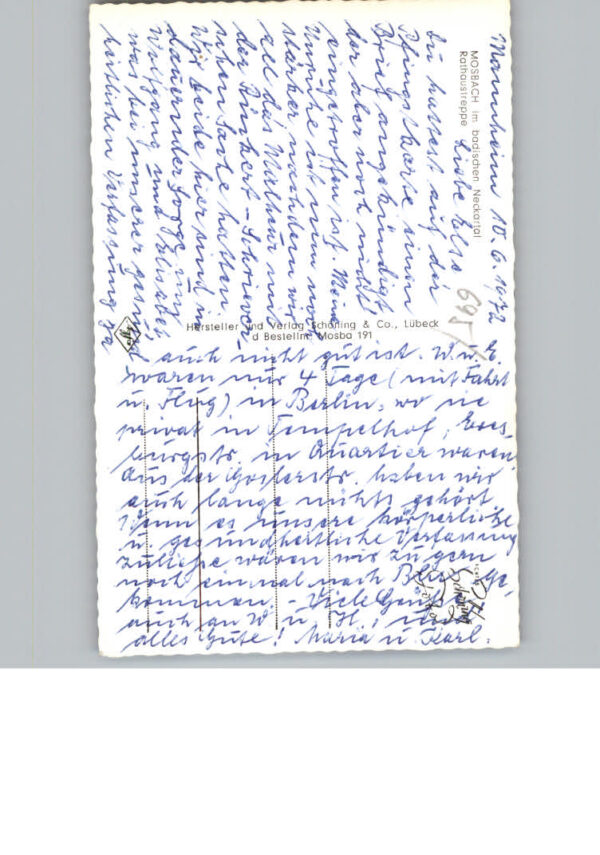 Mannheim 10.6.1972
MOSBACH im badischen Neckartal
Rathaustreppe
Liebe Else
Du hattest auf der
Pfingstkarte einen
Brief angekündigt
der aber noch nicht
eingetroffen ist. Meine
Unruhe ist nun noch
stärker nachdem wir
all das Malheur mit
der Bänkert-Schriever-
schen Sache hatten.
Wir beide hier sind in
dauernder Sorge um
Wolfgang und Elisabeth
was bei unserer gesund-
heitlichen Verfassung ja
695
Hersteller und Verlag Schöning & Co., Lübeck
Bestellnr. Mosba 191
auch nicht gut ist. W. u. E.
waren nur 4 Tage (mit Fahrt
u. Flug) in Berlin, wo sie
privat in Tempelhof,
burgstr. in Quartier waren.
Aus der Goslerstr. haben wir
auch lange nichts gehört
Wenn es unsere körperliche
u. gesundheitliche Verfassung
zuließe wären wir zu gern
noch einmal nach Bln ge-
kommen. - Viele Grüße
auch an W u H, und
alles Gute! Maria u Karl.